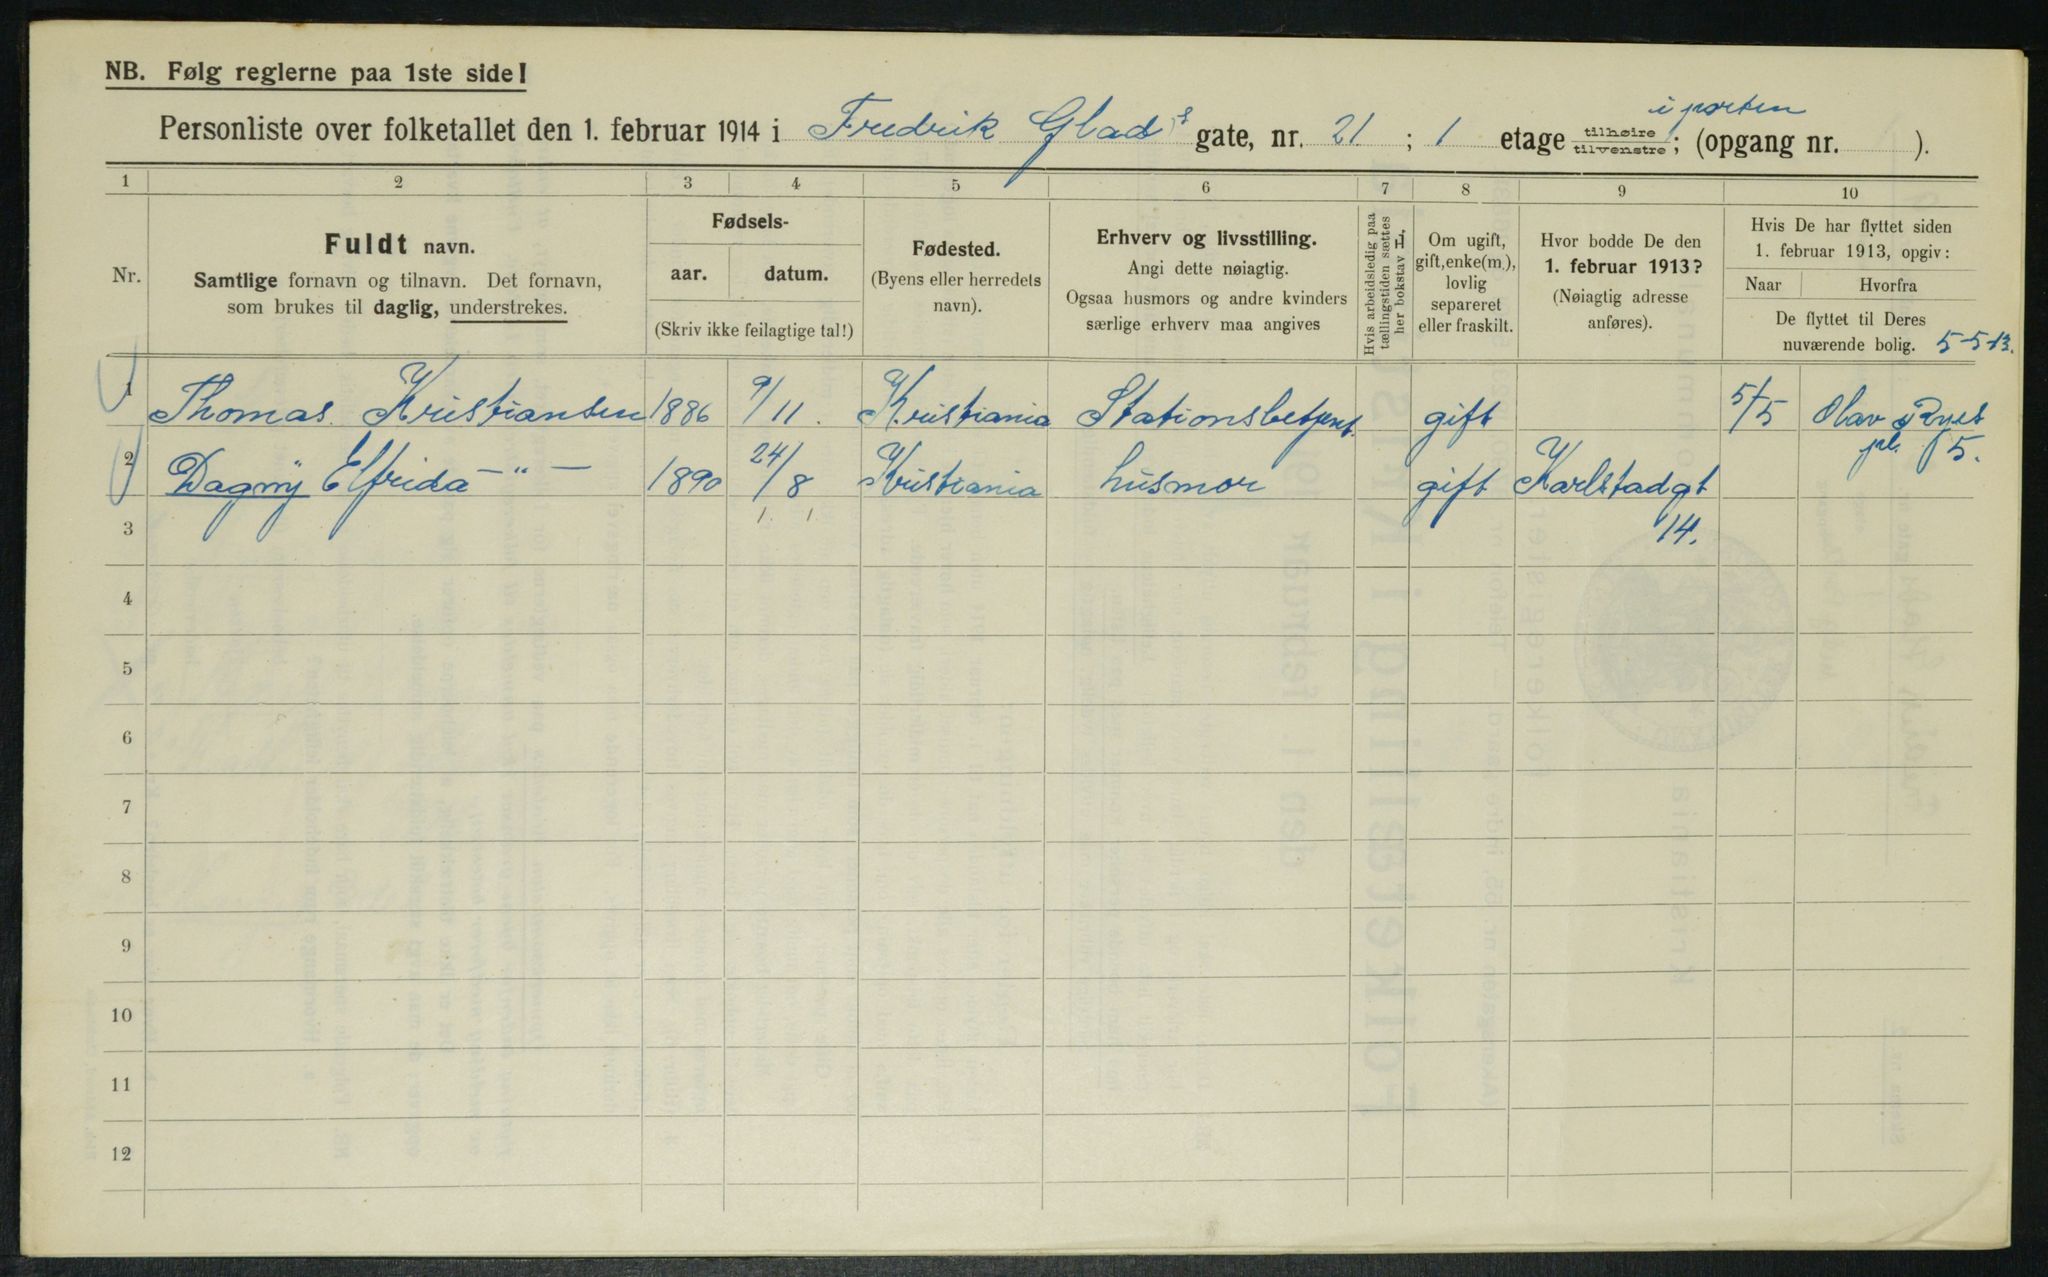 NB. Følg reglerne paa 1ste side!
i porten
Personliste over folketallet den 1. februar 1914 i Fredrik Glads gate, nr. 21 ; 1 etage tilhøire tilvenstre ; (opgang nr. ).
1 2 3 4 5 6 7 8 9 10
Nr.
Fuldt navn.
Samtlige fornavn og tilnavn. Det fornavn,
som brukes til daglig, understrekes.
Fødsels-
aar. datum.
(Skriv ikke feilagtige tal!)
Fødested.
(Byens eller herredets
navn).
Erhverv og livsstilling.
Angi dette nøiagtig.
Ogsaa husmors og andre kvinders
særlige erhverv maa angives
Hvis arbeidsledig paa
tællingstiden sættes
her bokstav H.
Om ugift,
gift, enke(m.),
lovlig
separeret
eller fraskilt.
Hvor bodde De den
1. februar 1913?
(Nøiagtig adresse
anføres).
Hvis De har flyttet siden
1. februar 1913, opgiv:
Naar Hvorfra
De flyttet til Deres
nuværende bolig. 5-5-13.
1 Thomas Kristiansen 1886 9/11. Kristiania Stationsbetjent. gift 5/5 Olav Ryes
pl. 5.
2 Dagny Elfrida -"- 1890 24/8 Kristiania husmor gift Karlstadgt
14.
3
4
5
6
7
8
9
10
11
12